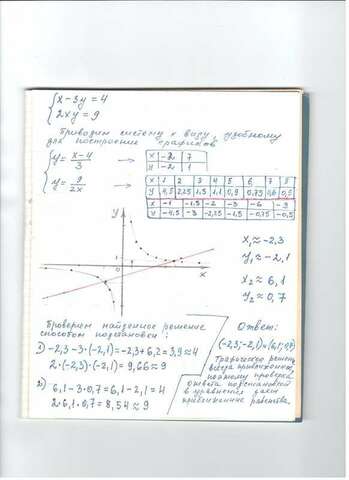 {x-3y=4
2xy=9
Приводим систему к виду, удобному
для построения графиков
{y=(x-4)/3 → x | -2 | 7
y | -2 | 1
y=9/(2x) → x | 1 | 2 | 3 | 4 | 5 | 6 | 7 | 8
y | 4,5 | 2,25 | 1,5 | 1,1 | 0,9 | 0,75 | 0,6 | 0,5
x | -1 | -1.5 | -2 | -3 | -6 | -9
y | -4,5 | -3 | -2,25 | -1,5 | -0,75 | -0,5
y
1
0
x
x₁ ≈ -2,3
y₁ ≈ -2,1
x₂ ≈ 6,1
y₂ ≈ 0,7
Проверим найденное решение
способом подстановки:
1) -2,3-3·(-2,1)=-2,3+6,2=3,9≈4
2·(-2,3)·(-2,1)=9,66≈9
2) 6,1-3·0,7=6,1-2,1=4
2·6,1·0,7=8,54≈9
Ответ:
(-2,3;-2,1);(6,1;0,7)
Графическое решение
всегда приближенное,
поэтому проверка
ответа подстановкой
в уравнения даёт
приближенные равенства.